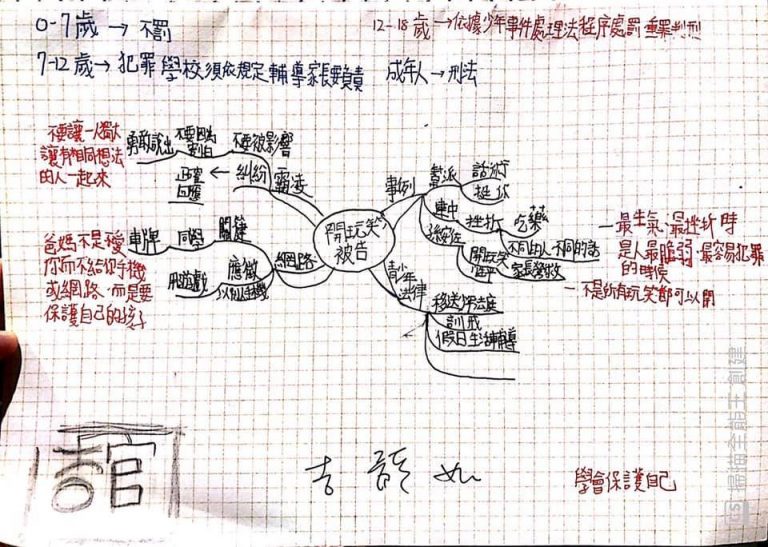 0-7歲 → 不罰
12-18歲 → 依據少年事件處理法程序處罰 重罪判刑
7-12歲 → 犯罪學校須依規定輔導家長要負責
成年人 → 刑法
不要讓一人獨大
讓有相同想法
的人一起來
勇敢說出
不要因為
不要被影響
正當
回應
← 糾紛
霸凌
開玩笑
被告
事例
幫派
話術
挺你
連中
挫折
吃藥
不同的人 不同的話
開玩笑
家長營救
一 最生氣、最挫折時
是人最脆弱、最容易犯罪
的時候
一 不是所有玩笑都可以開
爸媽不是不愛
你而不給你手機
或網路,而是要
保護自己的孩子
車牌
同學
關鍵
網路
應徵
玩遊戲
青少年
法律
移送少年法庭
訓戒
假日生活輔導
學會保護自己
掃描全能王 創建